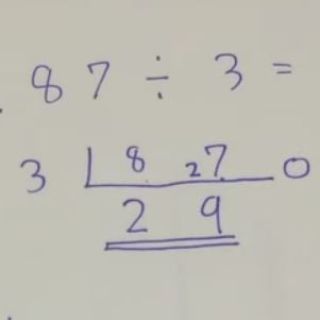 87 ÷ 3 =
3 8 27 0
29